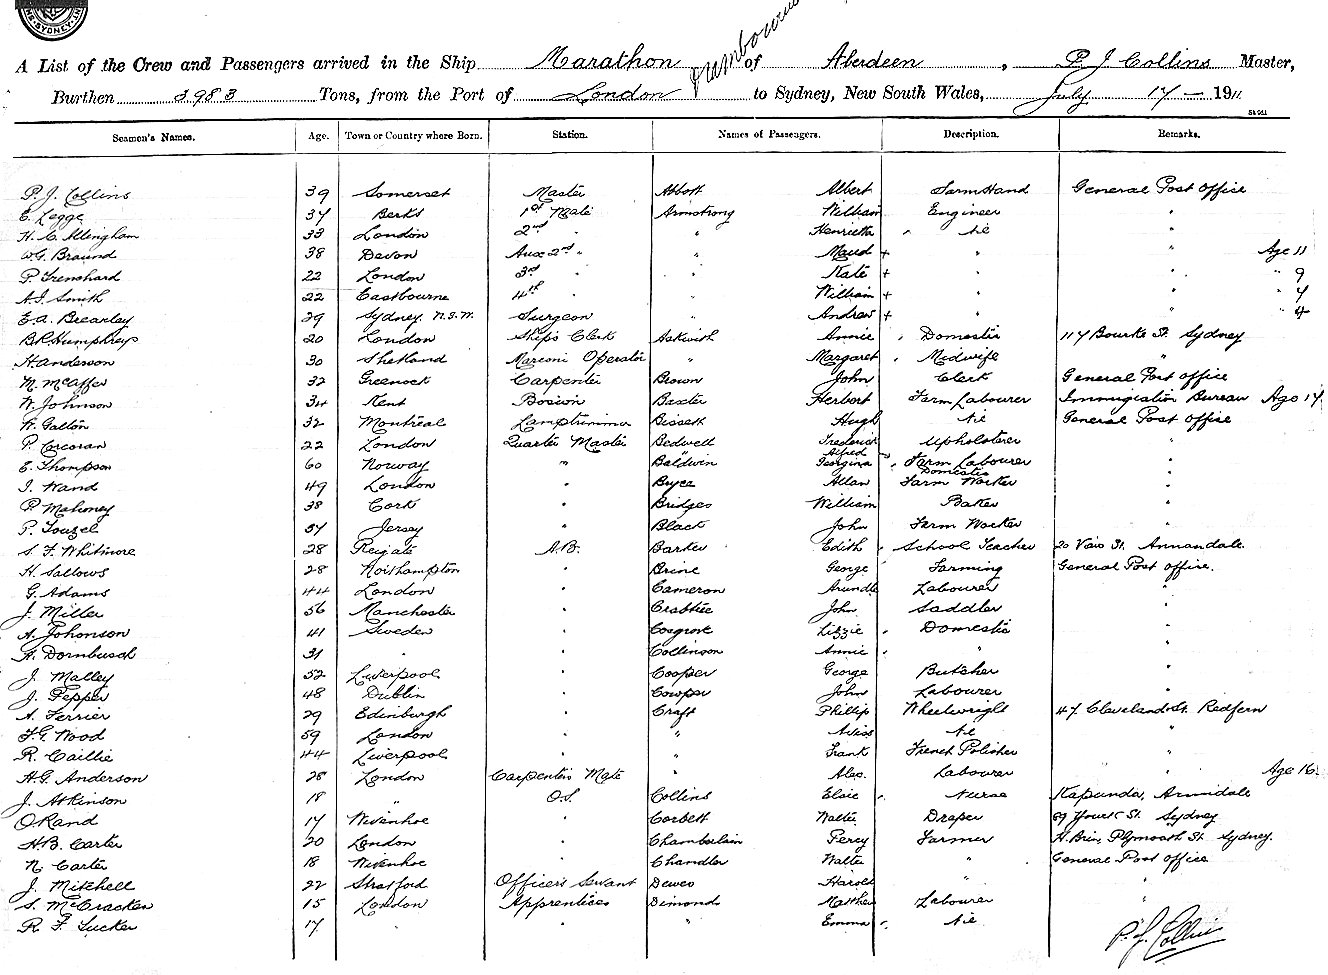 SYDNEY
A List of the Crew and Passengers arrived in the Ship Marathon of Aberdeen, P. J. Collins Master,
Burthen 3983 Tons, from the Port of London to Sydney, New South Wales, July 17 — 1911
Seamen's Names. Age. Town or Country where Born. Station. Names of Passengers. Description. Remarks.
P. J. Collins 39 Somerset Master Abbott Albert Farm Hand General Post Office
E. Legge 37 Berks 1st Mate Armstrong William Engineer "
H. C. Allingham 33 London 2nd " " Henrietta Nil "
W. G. Braund 38 Devon Aux 2nd " " Maud + " " Age 11
P. Trenchard 22 London 3rd " " Kate + " " " 9
A. J. Smith 22 Eastbourne 4th " " William + " " " 7
E. A. Brearley 29 Sydney, N.S.W. Surgeon " Andrew + " " " 4
B. R. Humphreys 20 London Ship's Clerk Askwith Annie Domestic 117 Bourke St. Sydney
H. Anderson 30 Shetland Marconi Operator " Margaret Midwife "
M. McAffer 32 Greenock Carpenter Brown John Clerk General Post Office
W. Johnson 34 Kent Boswn Baxter Herbert Farm Labourer Immigration Bureau Age 17
W. Galton 32 Montreal Lamptrimmer Bissett Hugh Nil General Post Office
P. Corcoran 22 London Quarter Master Bedwell Frederick Upholsterer "
E. Thompson 60 Norway " Baldwin Alfred Farm Labourer "
" Georgina Domestic
J. Wand 49 London " Bryce Allan Farm Worker "
P. Mahoney 38 Cork " Bridges William Baker "
P. Touzel 57 Jersey " Black John Farm Worker "
S. F. Whitmore 28 Reigate A.B. Barker Edith School Teacher 20 View St. Annandale
H. Sallows 28 Northampton " Brine George Farming General Post Office.
G. Adams 44 London " Cameron Arundle Labourer "
J. Miller 56 Manchester " Crabtree John Saddler "
A. Johonson 41 Sweden " Cosgrove Lizzie Domestic "
A. Dornbusch 31 " " Collinson Annie " "
J. Malley 52 Liverpool " Cooper George Butcher "
J. Pepper 48 Dublin " Cowper John Labourer "
A. Ferrier 29 Edinburgh " Craft Phillip Wheelwright 47 Cleveland St. Redfern
F. G. Wood 59 London " " Nil "
R. Caillie 44 Liverpool " " Frank French Polisher "
H. G. Anderson 28 London Carpenter's Mate " Alec. Labourer " Age 16
J. Atkinson 18 " O.S. Collins Elsie Nurse Kapunda, Armidale
O. Rand 17 Wivenhoe " Corbett Walter Draper St. Sydney
H. B. Carter 20 London " Chamberlain Percy Farmer Plymouth St. Sydney.
N. Carter 18 Wivenhoe " Chandler Walter " General Post Office
J. Mitchell 22 Stratford Officer's Servant Dewes Harold " "
S. McCracken 15 London Apprentices Dimonds Matthew Labourer "
R. F. Tucker 17 " " " Emma Nil
P. J. Collins